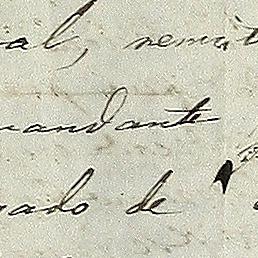 ial, remit
mandante
gado de